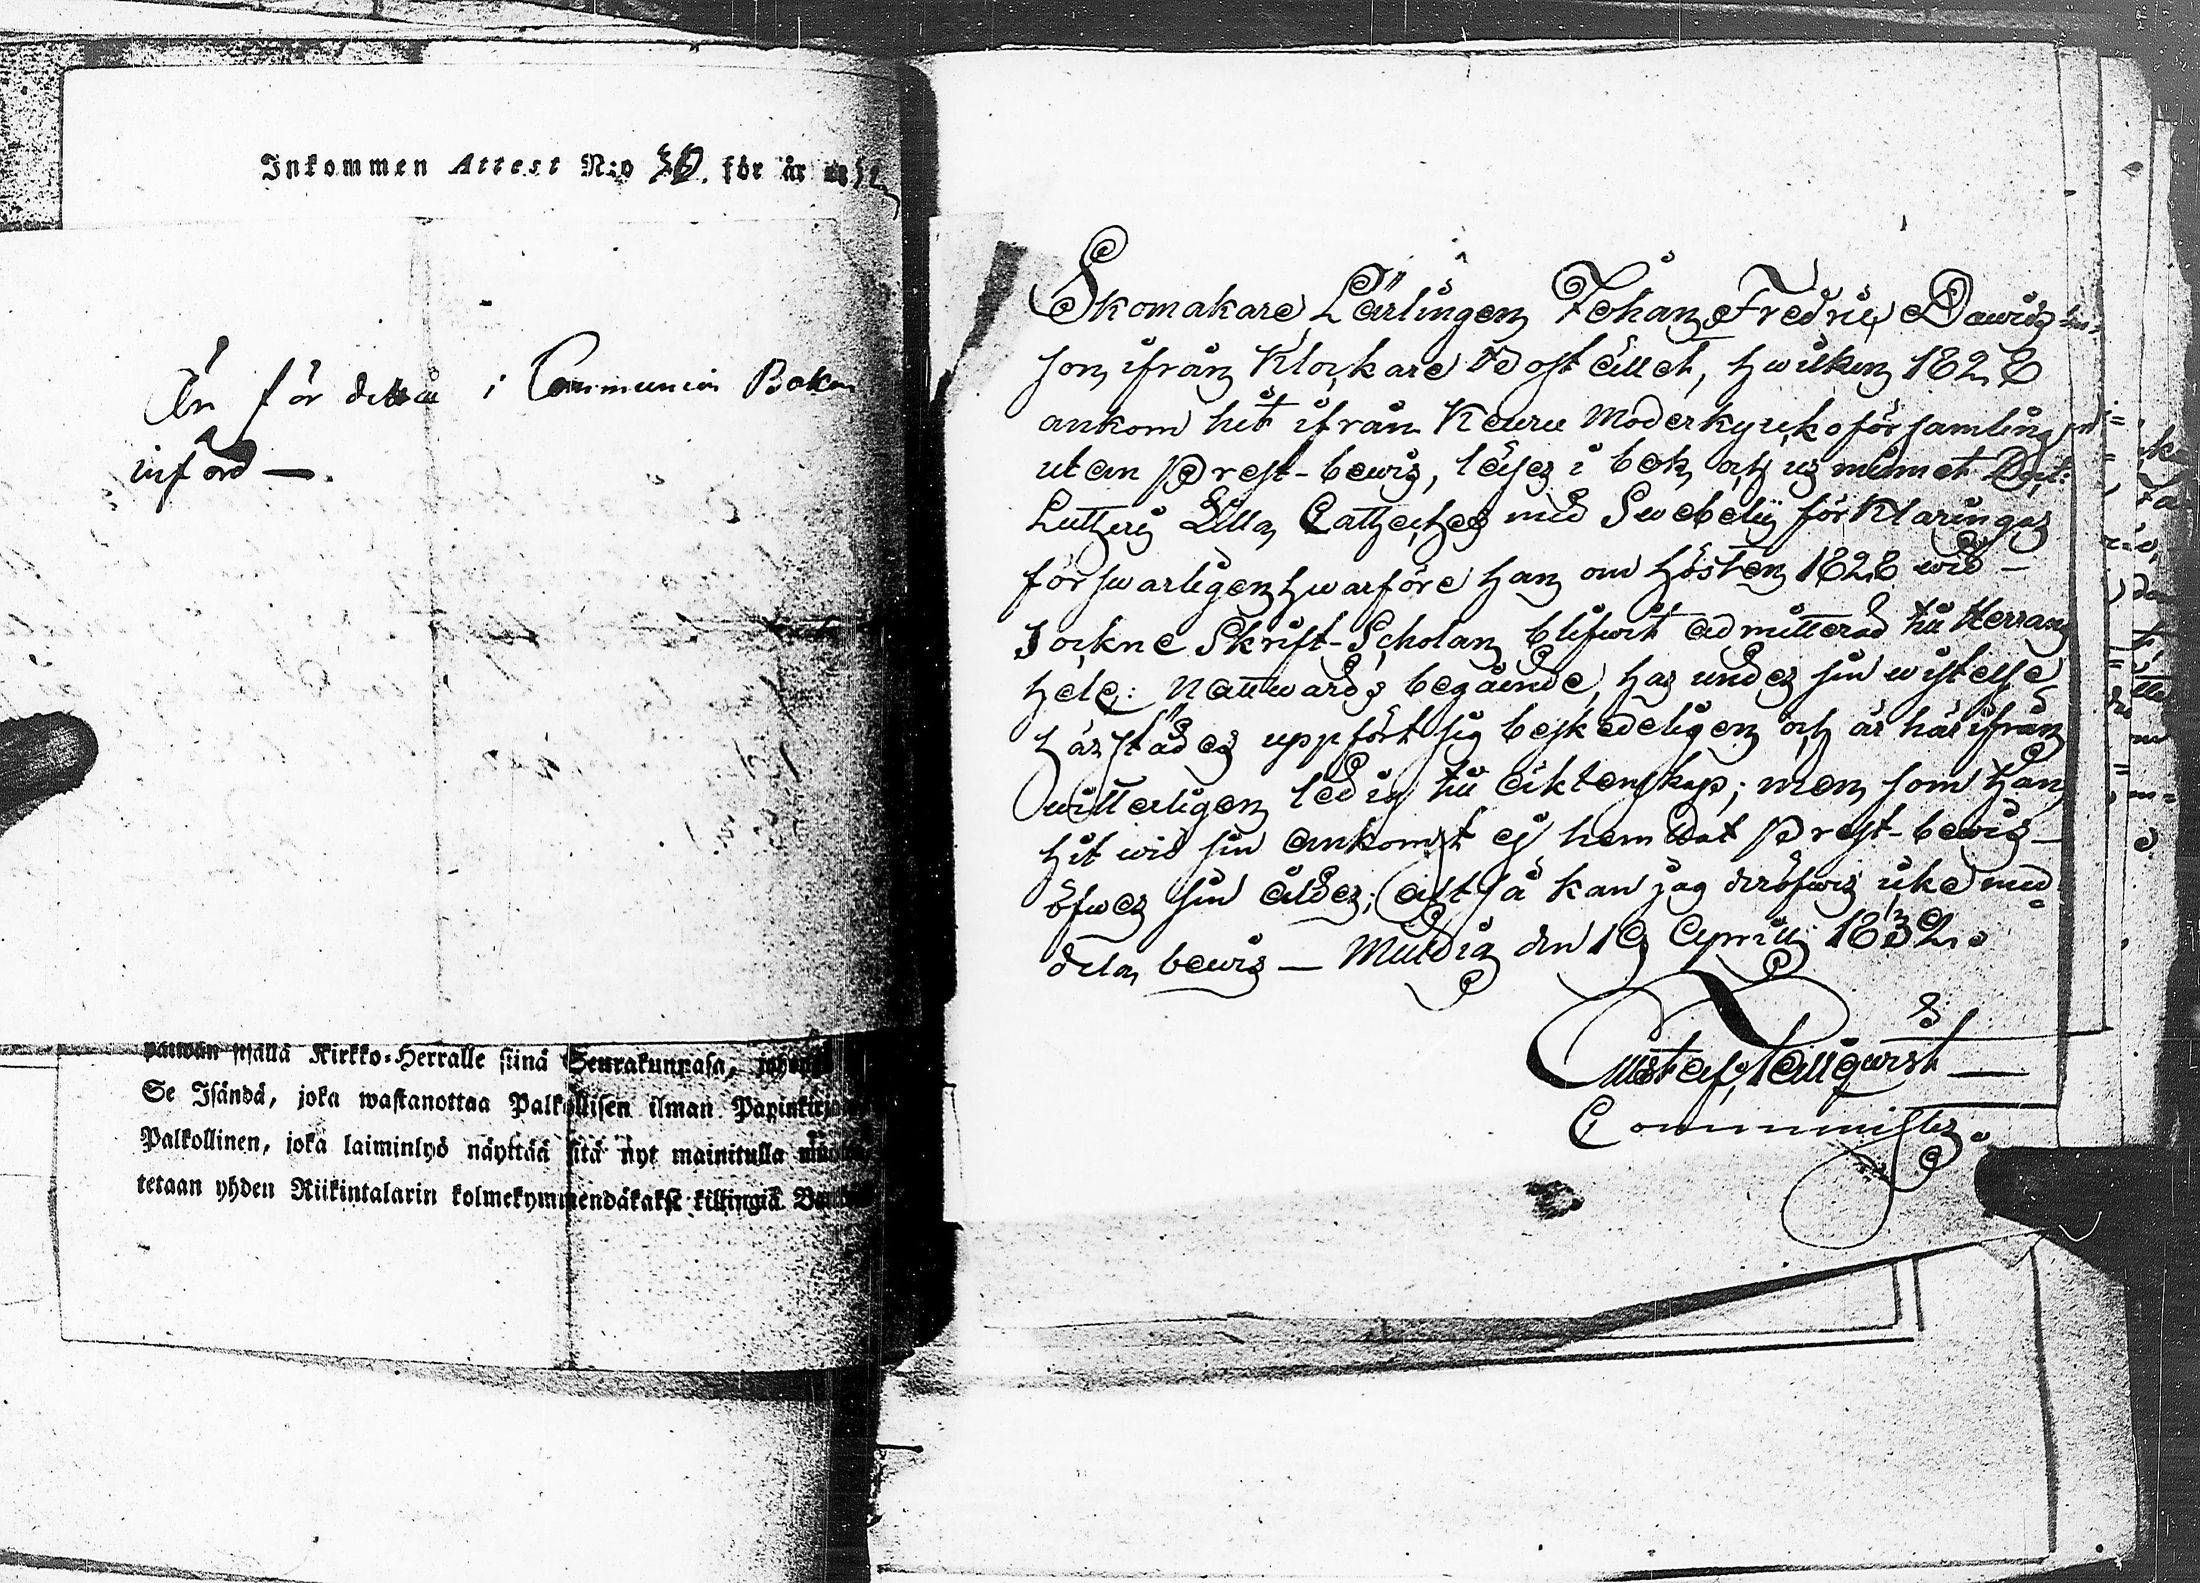 Inkommen Attest N:o 30. för år 1832
Är för detta i Communion Boken
införd —.
päiwän sisällä Kirkko-Herralle siinä Seurakunnasa,
Se Isändä, joka wastanottaa Palkollisen ilman Papinkirjaa
Palkollinen, joka laiminlyö näyttää sitä nyt mainitulla
tetaan yhden Riikintalarin kolmekymmendäkaksi killingiä
Skomakare Lärlingen Johan Fredric Davids-
son ifrån Klockare Bostället, hwilken 1828
ankom hit ifrån Keuru Moderkyrko församling
utan Prest-bewis, läser i bok och ur minnet Doct:
Lutheri Lilla Catheches med Swebelii förklaringar
förswarligen hwarföre han om hösten 1828 wid
Sockne Skrift-Scholan blifwit admitterad till Herrans
Helg: Nattwards begående, har under sin wistelse
härstädes uppfört sig beskedeligen och är härifrån
witterligen ledig till äktenskap; men som han
hit wid sin ankomst ej hemtat Prest-bewis
öfwer sin ålder; altså kan jag deröfwer icke med-
dela bewis — Multia den 19 Aprill 1832.
Gustaf Tallqwist
Comminister.